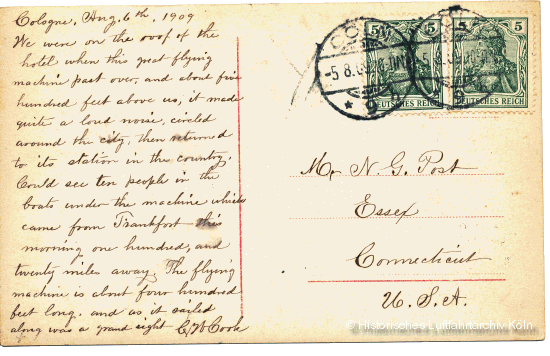 Cologne, Aug. 6th, 1909
We were on the roof of the
hotel when this great flying
machine past over, and about five
hundred feet above us, it made
quite a loud noise, circled
around the city, then returned
to its station in the country.
Could see ten people in the
boats under the machine which
came from Frankfort this
morning one hundred, and
twenty miles away. The flying
machine is about four hundred
feet long. and as it sailed
along was a grand sight C W Cook
5 5
DEUTSCHES REICH DEUTSCHES REICH
-5.8.09
Mr N. G. Post
Essex
Connecticut
U.S.A.
© Historisches Luftfahrtarchiv Köln